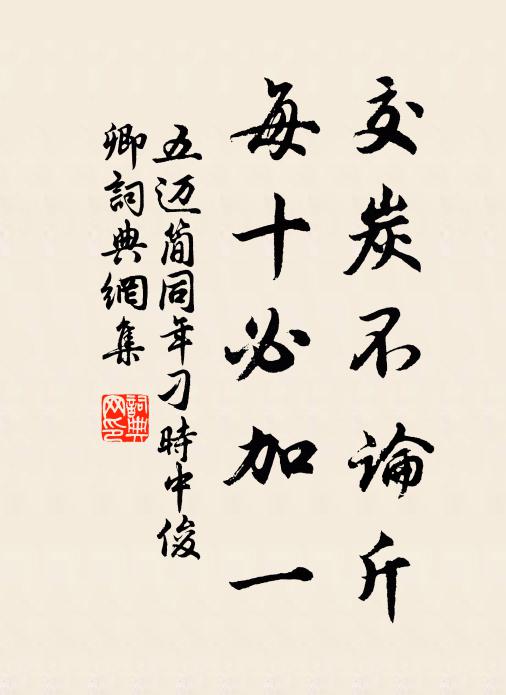 交炭不論斤
每十必加一
五迈简同年刁時中俊
卿詞典網集
詞典网印